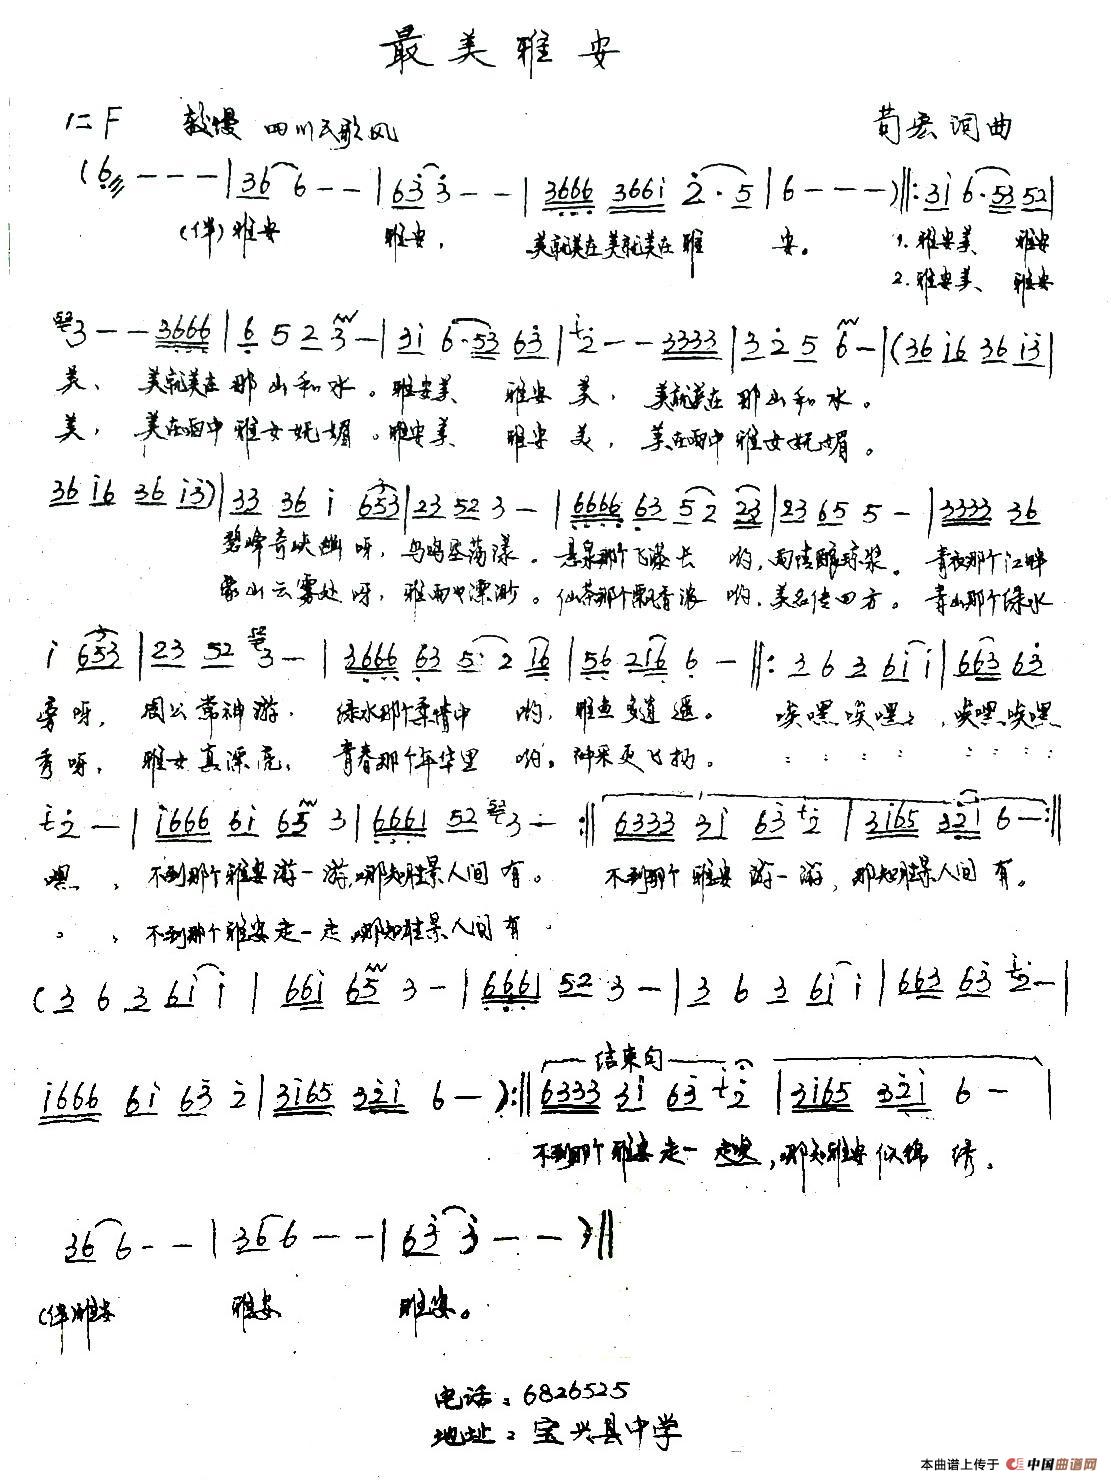 最美雅安
1=F 较慢 四川民歌风 苟宏词曲
(6 - - - | 36 6 - - | 63 3 - - | 3666 366i 2·5 | 6 - - - ) ‖: 3i 6·53 52 |
(伴)雅安 雅安, 美就美在美就美在雅 安。 1.雅安美、 雅安
2.雅安美、 雅安
3 - - 3666 | 6 5 2 3 - | 3i 6·53 63 | 2 - - 3333 | 3 2 5 6 - | (36 i6 36 i3 |
美、 美就美在那山和水。雅安美 雅安美, 美就美在那山和水。
美, 美在雨中雅女妩媚。雅安美 雅安美, 美在雨中雅女妩媚。
36 i6 36 i3) | 33 36 i 653 | 23 52 3 - | 6666 63 5 2 23 | 23 65 5 - | 3333 36
碧峰奇峡幽呀, 鸟鸣 荡漾。悬泉那个飞瀑长 哟, 雨 醇琼浆。青衣那个江畔
蒙山云雾处呀, 雅雨 漂渺。仙茶那个飘香浓 哟, 美名传四方。青山那个绿水
i 653 | 23 52 3 - | 3666 63 5· 2 16 | 56 216 6 - ‖: 3 6 3 6i i | 663 63
旁呀, 周公常神游。绿水那个柔情中 哟, 雅鱼多逍遥。 唉嘿唉嘿, 唉嘿唉嘿
秀呀, 雅女真漂亮, 青春那个年华里 哟, 神采更飞扬。
2 - | i666 6i 65 3 | 6661 52 3 - :‖ 6333 3i 63 2 | 3i65 32i 6 - :‖
嘿, 不到那个雅安游一游,哪知胜景人间有。 不到那个雅安游一游, 哪知胜景人间有。
不到那个雅安走一走,哪知胜景人间有
(3 6 3 6i i | 66i 65 3 - | 6661 52 3 - | 3 6 3 6i i | 663 63 2 - |
结束句
i666 6i 63 2 | 3i65 32i 6 - ):‖ 6333 3i 63 2 | 3i65 32i 6 - |
不到那个雅安走一走, 哪知雅安似锦绣。
36 6 - - | 36 6 - - | 63 3 - - ‖
(伴)雅安 雅安 雅安。
电话:6826525
地址:宝兴县中学
本曲谱上传于 中国曲谱网